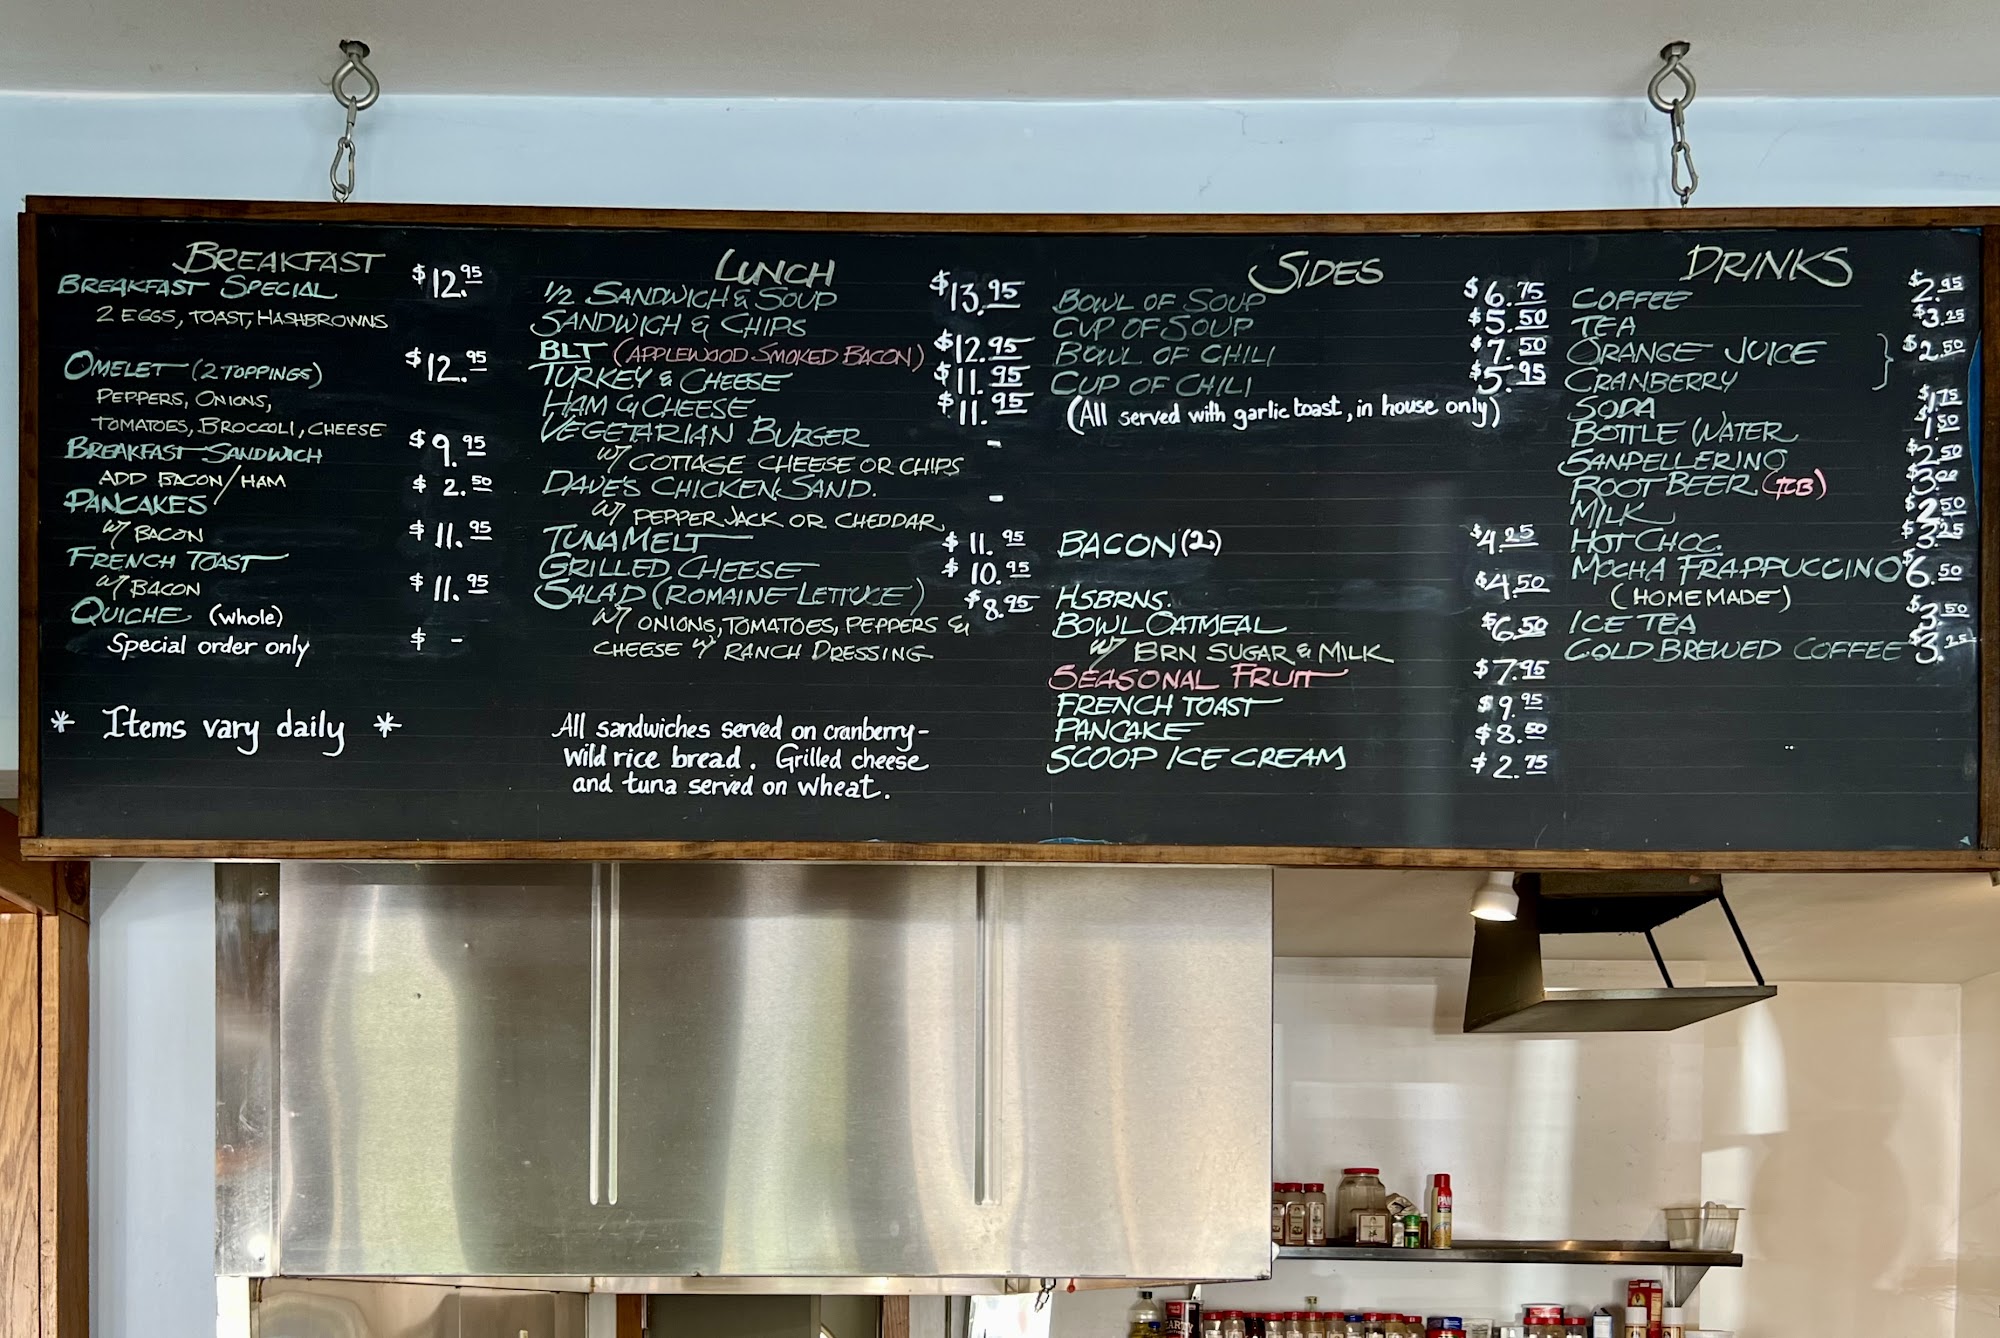 BREAKFAST
BREAKFAST SPECIAL $12.95
2 EGGS, TOAST, HASHBROWNS
OMELET (2 TOPPINGS) $12.95
PEPPERS, ONIONS,
TOMATOES, BROCCOLI, CHEESE
BREAKFAST SANDWICH $9.95
ADD BACON/HAM $2.50
PANCAKES
W/ BACON $11.95
FRENCH TOAST
W/ BACON $11.95
QUICHE (whole)
Special order only $ -
* Items vary daily *
LUNCH
1/2 SANDWICH & SOUP $13.95
SANDWICH & CHIPS
BLT (APPLEWOOD SMOKED BACON) $12.95
TURKEY & CHEESE $11.95
HAM & CHEESE $11.95
VEGETARIAN BURGER -
W/ COTTAGE CHEESE OR CHIPS
DAVE'S CHICKEN SAND. -
W/ PEPPER JACK OR CHEDDAR
TUNA MELT $11.95
GRILLED CHEESE $10.95
SALAD (ROMAINE LETTUCE) $8.95
W/ ONIONS, TOMATOES, PEPPERS &
CHEESE W/ RANCH DRESSING
All sandwiches served on cranberry-
wild rice bread. Grilled cheese
and tuna served on wheat.
SIDES
BOWL OF SOUP $6.75
CUP OF SOUP $5.50
BOWL OF CHILI $7.50
CUP OF CHILI $5.95
(All served with garlic toast, in house only)
BACON (2) $4.25
HSBRNS. $4.50
BOWL OATMEAL $6.50
W/ BRN SUGAR & MILK
SEASONAL FRUIT $7.95
FRENCH TOAST $9.95
PANCAKE $8.50
SCOOP ICE CREAM $2.75
DRINKS
COFFEE $2.95
TEA $3.25
ORANGE JUICE } $2.50
CRANBERRY
SODA $1.75
BOTTLE WATER $1.50
SANPELLERINO $2.50
ROOT BEER (ICB) $3.00
MILK $2.50
HOT CHOC. $3.25
MOCHA FRAPPUCCINO $6.50
(HOMEMADE)
ICE TEA $3.50
COLD BREWED COFFEE $3.25